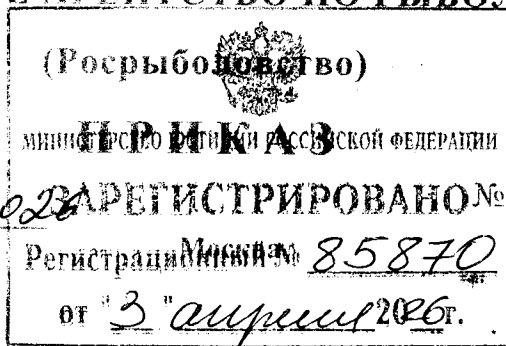 АГЕНТСТВО ПО РЫБОЛ
(Росрыболовство)
ПРИКАЗ
МИНИСТЕРСТВО ЮСТИЦИИ РОССИЙСКОЙ ФЕДЕРАЦИИ
ЗАРЕГИСТРИРОВАНО №
Москва
Регистрационный № 85870
от "3" апреля 2026г.